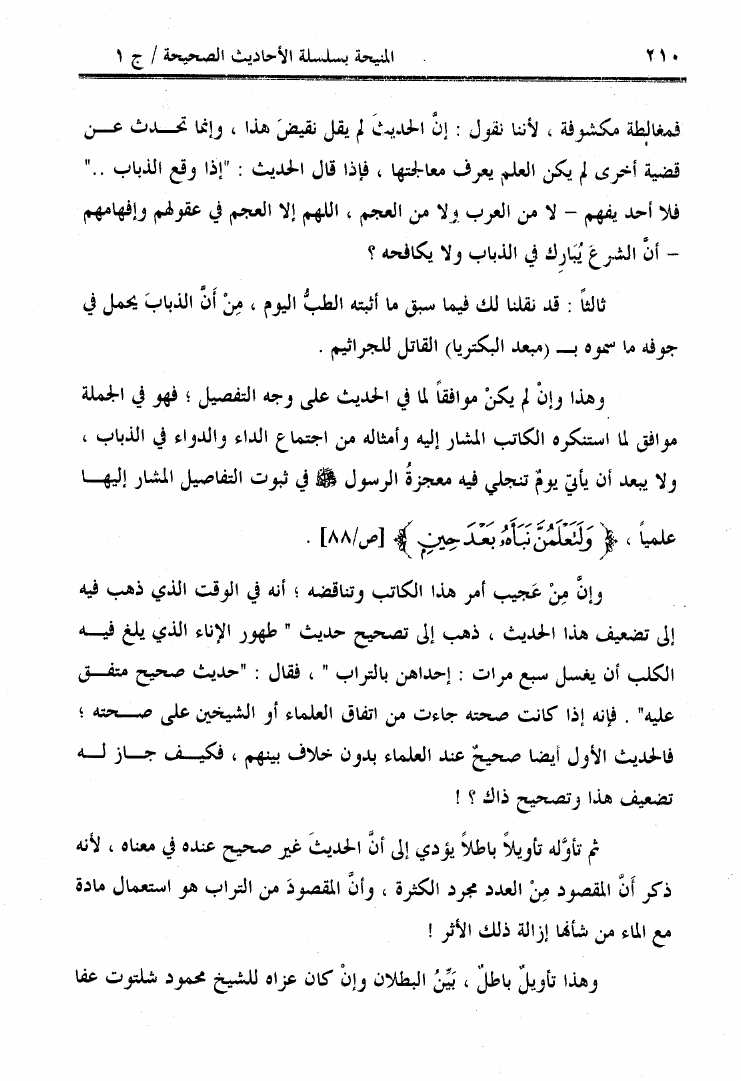 ٢١٠ المنيحة بسلسلة الأحاديث الصحيحة / ج ١
فمغالطة مكشوفة ، لأننا نقول : إنَّ الحديثَ لم يقل نقيضَ هذا ، وإنما تحــدث عــن
قضية أخرى لم يكن العلم يعرف معالجتها ، فإذا قال الحديث : "إذا وقع الذباب .."
فلا أحد يفهم – لا من العرب ولا من العجم ، اللهم إلا العجم في عقولهم وإفهامهم
– أنَّ الشرعَ يُبَارِك في الذباب ولا يكافحه ؟
ثالثاً : قد نقلنا لك فيما سبق ما أثبته الطبُّ اليوم ، مِنْ أنَّ الذبابَ يحمل في
جوفه ما سموه بــ (مبعد البكتريا) القاتل للجراثيم .
وهذا وإنْ لم يكنْ موافقاً لما في الحديث على وجه التفصيل ؛ فهو في الجملة
موافق لما استنكره الكاتب المشار إليه وأمثاله من اجتماع الداء والدواء في الذباب ،
ولا يبعد أن يأتيَ يومٌ تنجلي فيه معجزةُ الرسول ﷺ في ثبوت التفاصيل المشار إليهــا
علمياً ، ﴿ وَلَتَعْلَمُنَّ نَبَأَهُ بَعْدَ حِينٍ ﴾ [ص/٨٨] .
وإنَّ مِنْ عَجيب أمر هذا الكاتب وتناقضه ؛ أنه في الوقت الذي ذهب فيه
إلى تضعيف هذا الحديث ، ذهب إلى تصحيح حديث " طهور الإناء الذي يلغ فيــه
الكلب أن يغسل سبع مرات : إحداهن بالتراب " ، فقال : "حديث صحيح متفــق
عليه" . فإنه إذا كانت صحته جاءت من اتفاق العلماء أو الشيخين على صــحته ؛
فالحديث الأول أيضا صحيحٌ عند العلماء بدون خلاف بينهم ، فكيــف جــاز لــه
تضعيف هذا وتصحيح ذاك ؟ !
ثم تأوَّله تأويلاً باطلاً يؤدي إلى أنَّ الحديثَ غير صحيح عنده في معناه ، لأنه
ذكر أنَّ المقصود مِنْ العدد مجرد الكثرة ، وأنَّ المقصودَ من التراب هو استعمال مادة
مع الماء من شأنها إزالة ذلك الأثر !
وهذا تأويلٌ باطلٌ ، بَيِّنُ البطلان وإنْ كان عزاه للشيخ محمود شلتوت عفا